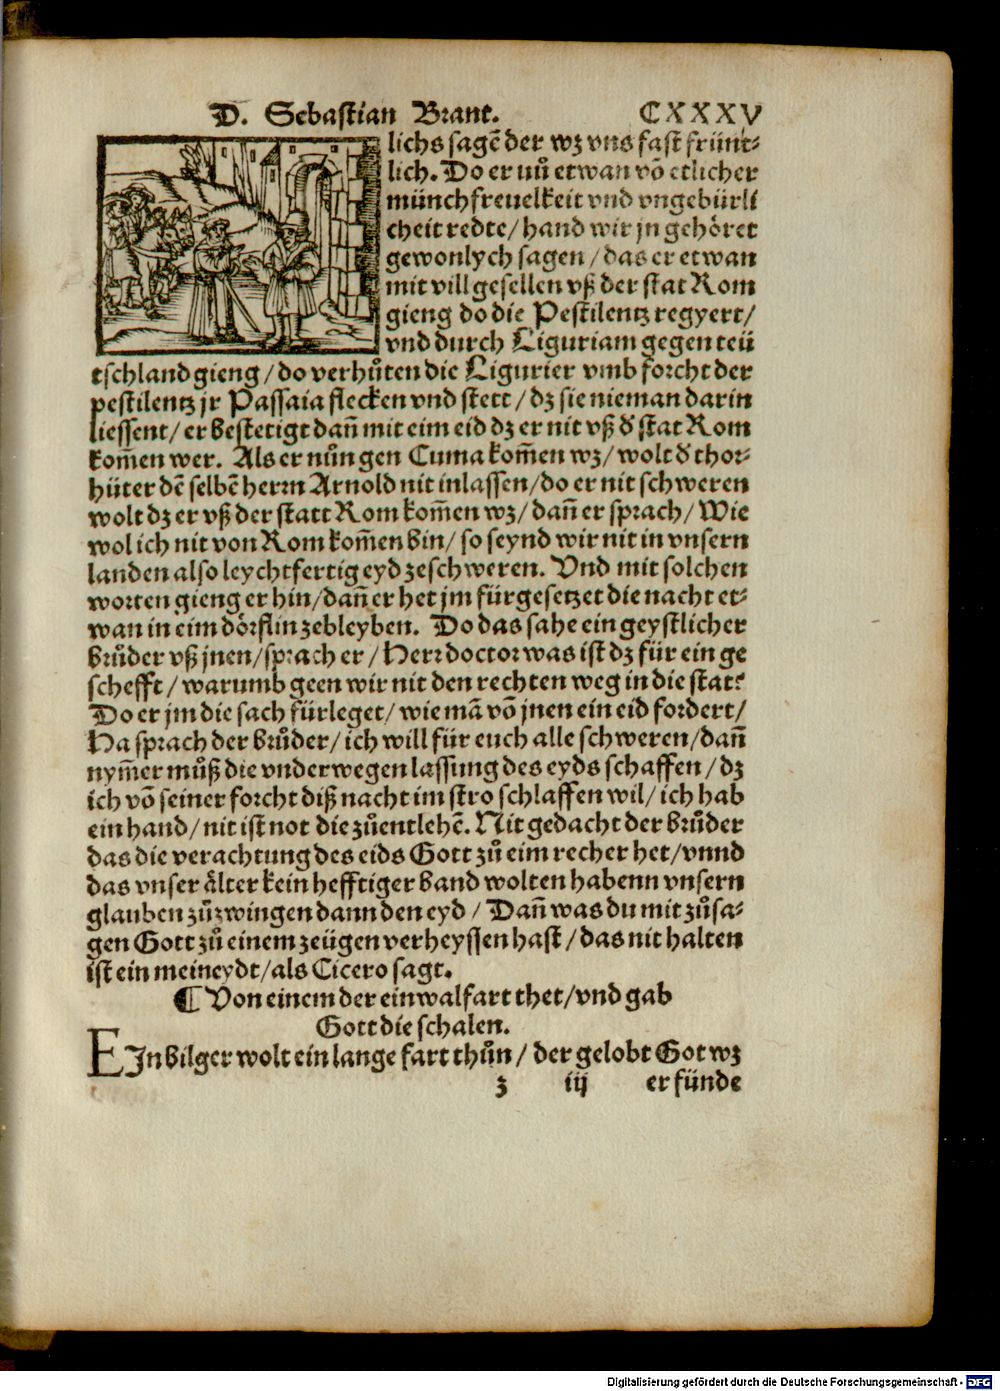 D. Sebastian Brant. CXXXV
lichs sagē der wz vns fast frünt-
lich. Do er nuͦ etwan vō etlicher
münch freuelkeit vnd vngebürli
cheit redte/ hand wir jn gehöret
gewonlych sagen / das er etwan
mit vill gesellen vß der stat Rom
gieng do die Pestilentz regyert/
vnd durch Liguriam gegen teü
tschland gieng / do verhuͤten die Ligurier vmb forcht der
pestilentz jr Passaia flecken vnd stett / dz sie nieman darin
liessent/ er bestetigt dañ mit eim eid dz er nit vß d' stat Rom
kom̄en wer. Als er nuͦn gen Cuma kom̄en wz/ wolt d' thor-
hüter dē selbē herrn Arnold nit inlassen/ do er nit schweren
wolt dz er vß der statt Rom kom̄en wz/ dañ er sprach/ Wie
wol ich nit von Rom kom̄en bin/ so seynd wir nit in vnsern
landen also leychtfertig eyd zeschweren. Vnd mit solchen
worten gieng er hin/ dañ er het jm fürgesetzet die nacht et-
wan in eim dörflin zebleyben. Do das sahe ein geystlicher
bruͦder vß jnen/ sprach er / Herr doctor was ist dz für ein ge
schefft / warumb geen wir nit den rechten weg in die stat?
Do er jm die sach fürleget/ wie mā vō jnen ein eid fordert/
Ha sprach der bruͦder/ ich will für euch alle schweren/ dañ
nym̄er muͦß die vnderwegen lassung des eyds schaffen / dz
ich vō seiner forcht diß nacht im stro schlaffen wil/ ich hab
ein hand/ nit ist not die zuͦentlehē. Nit gedacht der bruͦder
das die verachtung des eids Gott zuͦ eim recher het/ vnnd
das vnser älter kein hefftiger band wolten habenn vnsern
glauben zuͦzwingen dann den eyd / Dañ was du mit zuͦsa-
gen Gott zuͦ einem zeügen verheyssen hast / das nit halten
ist ein meineydt/ als Cicero sagt.
¶ Von einem der ein walfart thet/ vnd gab
Gott die schalen.
EJn bilger wolt ein lange fart thuͦn / der gelobt Got wz
z iij er fünde
Digitalisierung gefördert durch die Deutsche Forschungsgemeinschaft - DFG